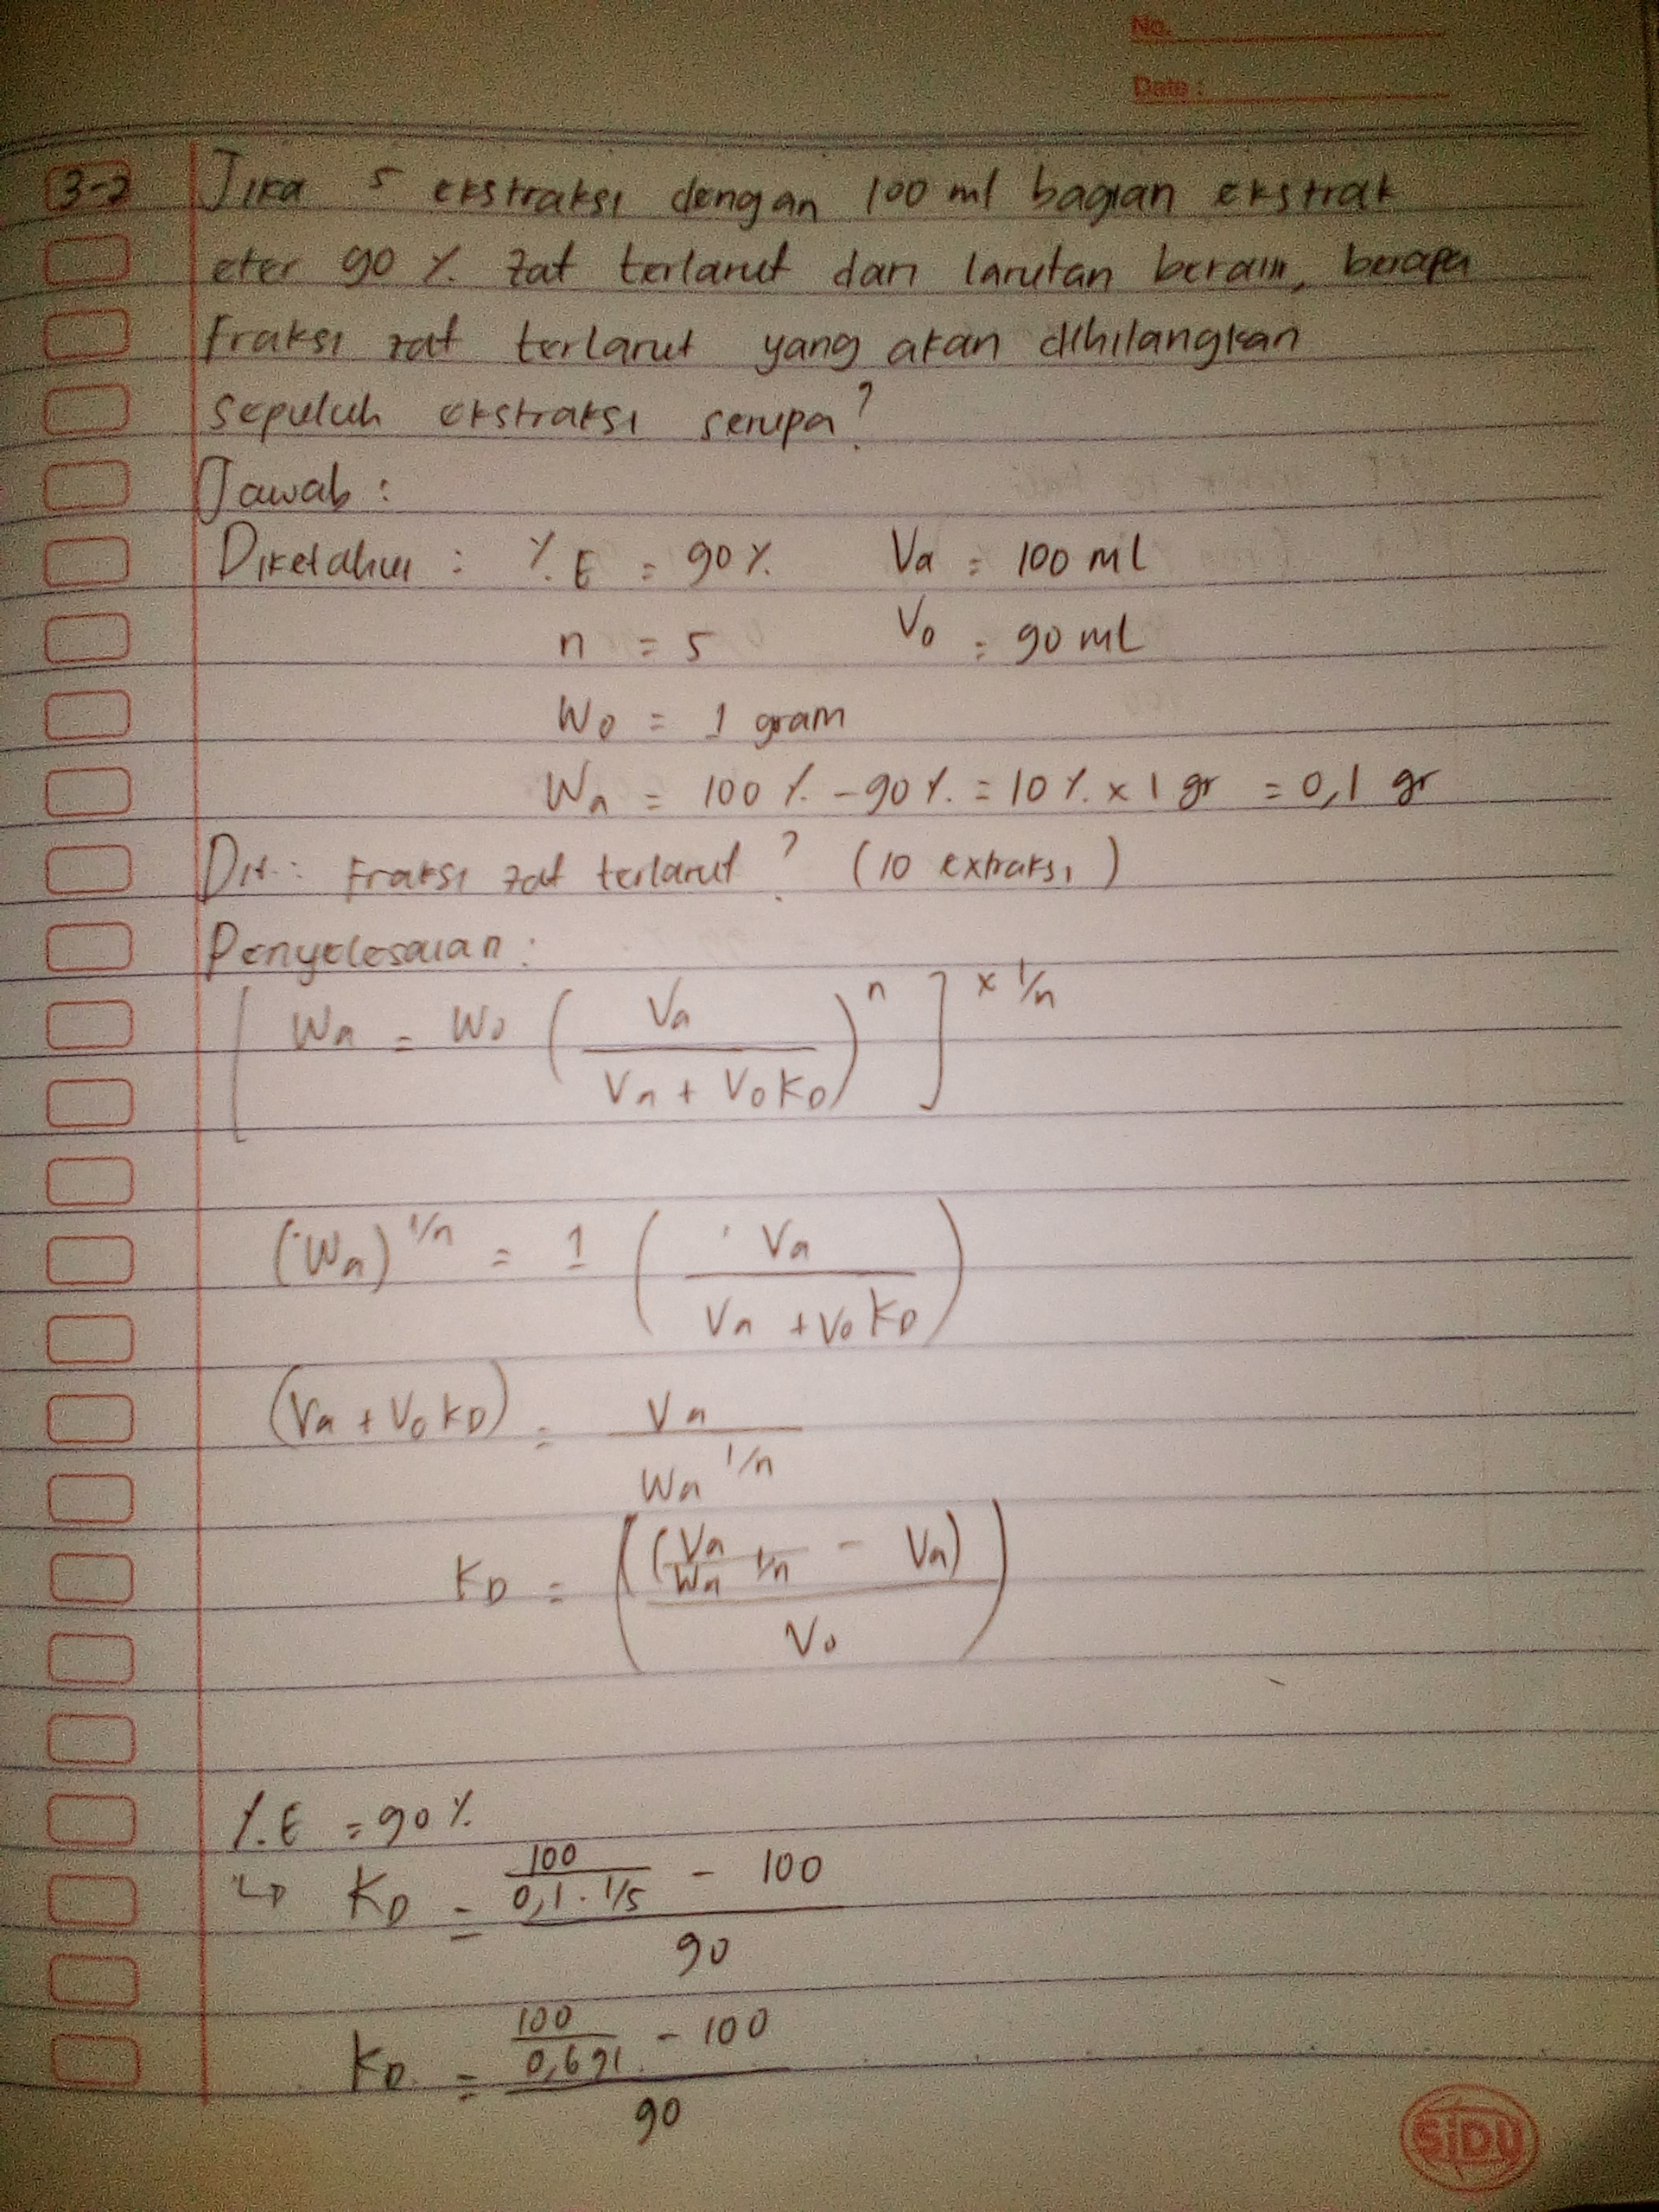 No.
Date :
3-2 Jika 5 ekstraksi dengan 100 ml bagian ekstrak
eter 90 % zat terlarut dari larutan berain, berapa
fraksi zat terlarut yang akan dihilangkan
sepuluh ekstraksi serupa?
Jawab :
Diketahui : % E = 90 % Va = 100 ml
n = 5 Vo = 90 mL
Wo = 1 gram
Wa = 100 % - 90 % = 10 % x 1 gr = 0,1 gr
Dit : Fraksi zat terlarut ? (10 extraksi)
Penyelesaian :
[ Wa = Wo ( Va / (Va + Vo KD) )^n ] ^x 1/n
(Wa)^1/n = 1 ( Va / (Va + Vo KD) )
(Va + Vo KD) = Va / Wa^1/n
KD = ( ( Va / Wa 1/n - Va ) / Vo )
% E = 90 %
↳ KD = ( 100 / 0,1 . 1/5 - 100 ) / 90
KD = ( 100 / 0,691 - 100 ) / 90
SiDU